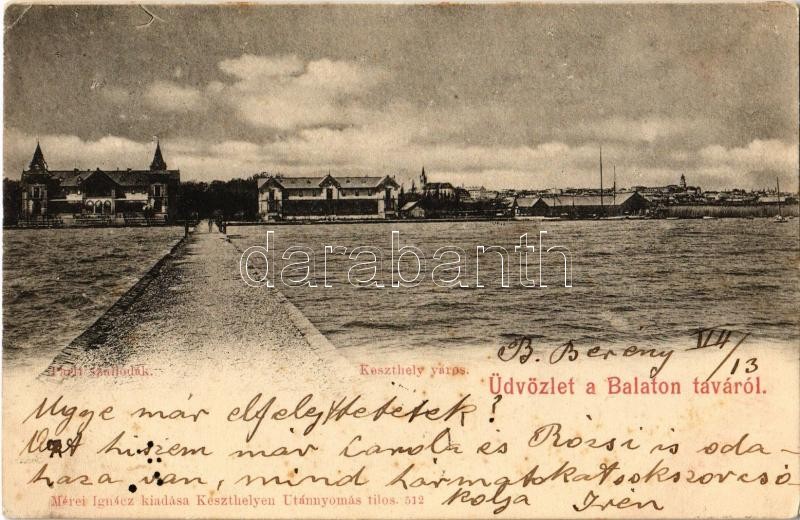 darabanth
B. Berény VII/13
Parti szállodák.
Keszthely város.
Üdvözlet a Balaton taváról.
Ugye már elfelejtettetek?
Azt hiszem már Carola és Rózsi is oda-
haza van, mind hármatokat sokszor csó
kolja Irén
Mérei Ignácz kiadása Keszthelyen Utánnyomás tilos. 512